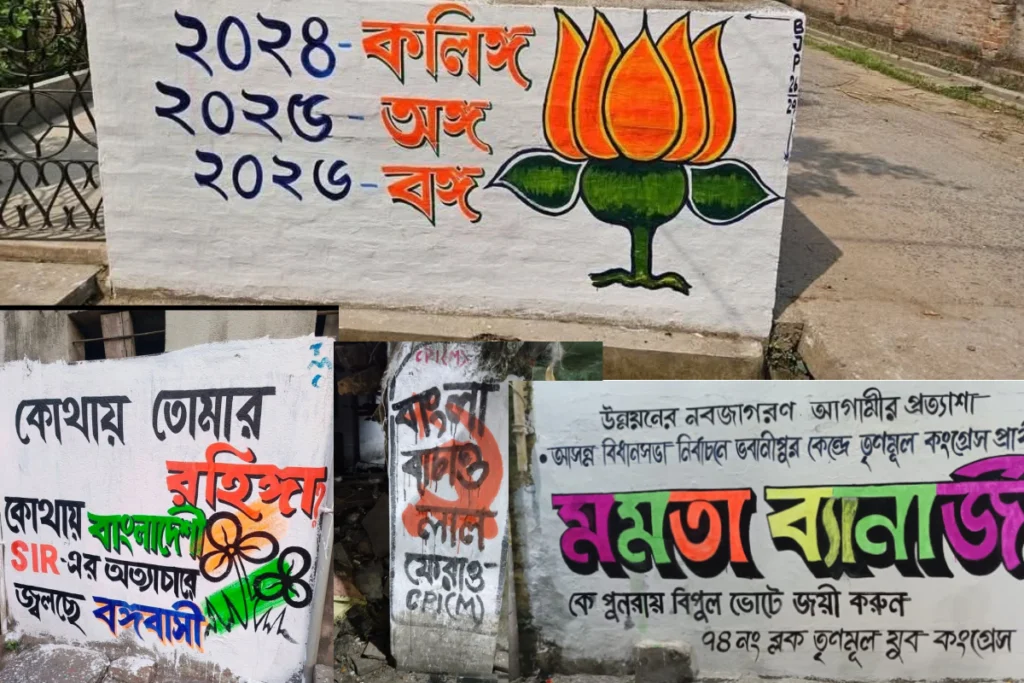 ২০২৪- কলিঙ্গ
২০২৫- অঙ্গ
২০২৬- বঙ্গ
BJP
কোথায় তোমার
রহিঙ্গা,
কোথায় বাংলাদেশী
SIR-এর অত্যাচারে
জ্বলছে বঙ্গবাসী
CPI(M)
বাংলা
বাঁচাও
লাল
ফেরাও-
CPI(M)
উন্নয়নের নবজাগরণ আগামীর প্রত্যাশা
•আসন্ন বিধানসভা নির্বাচনে ভবানীপুর কেন্দ্রে তৃণমূল কংগ্রেস প্রার্থ
মমতা ব্যানার্জী
কে পুনরায় বিপুল ভোটে জয়ী করুন
৭৪ নং ব্লক তৃণমূল যুব কংগ্রেস